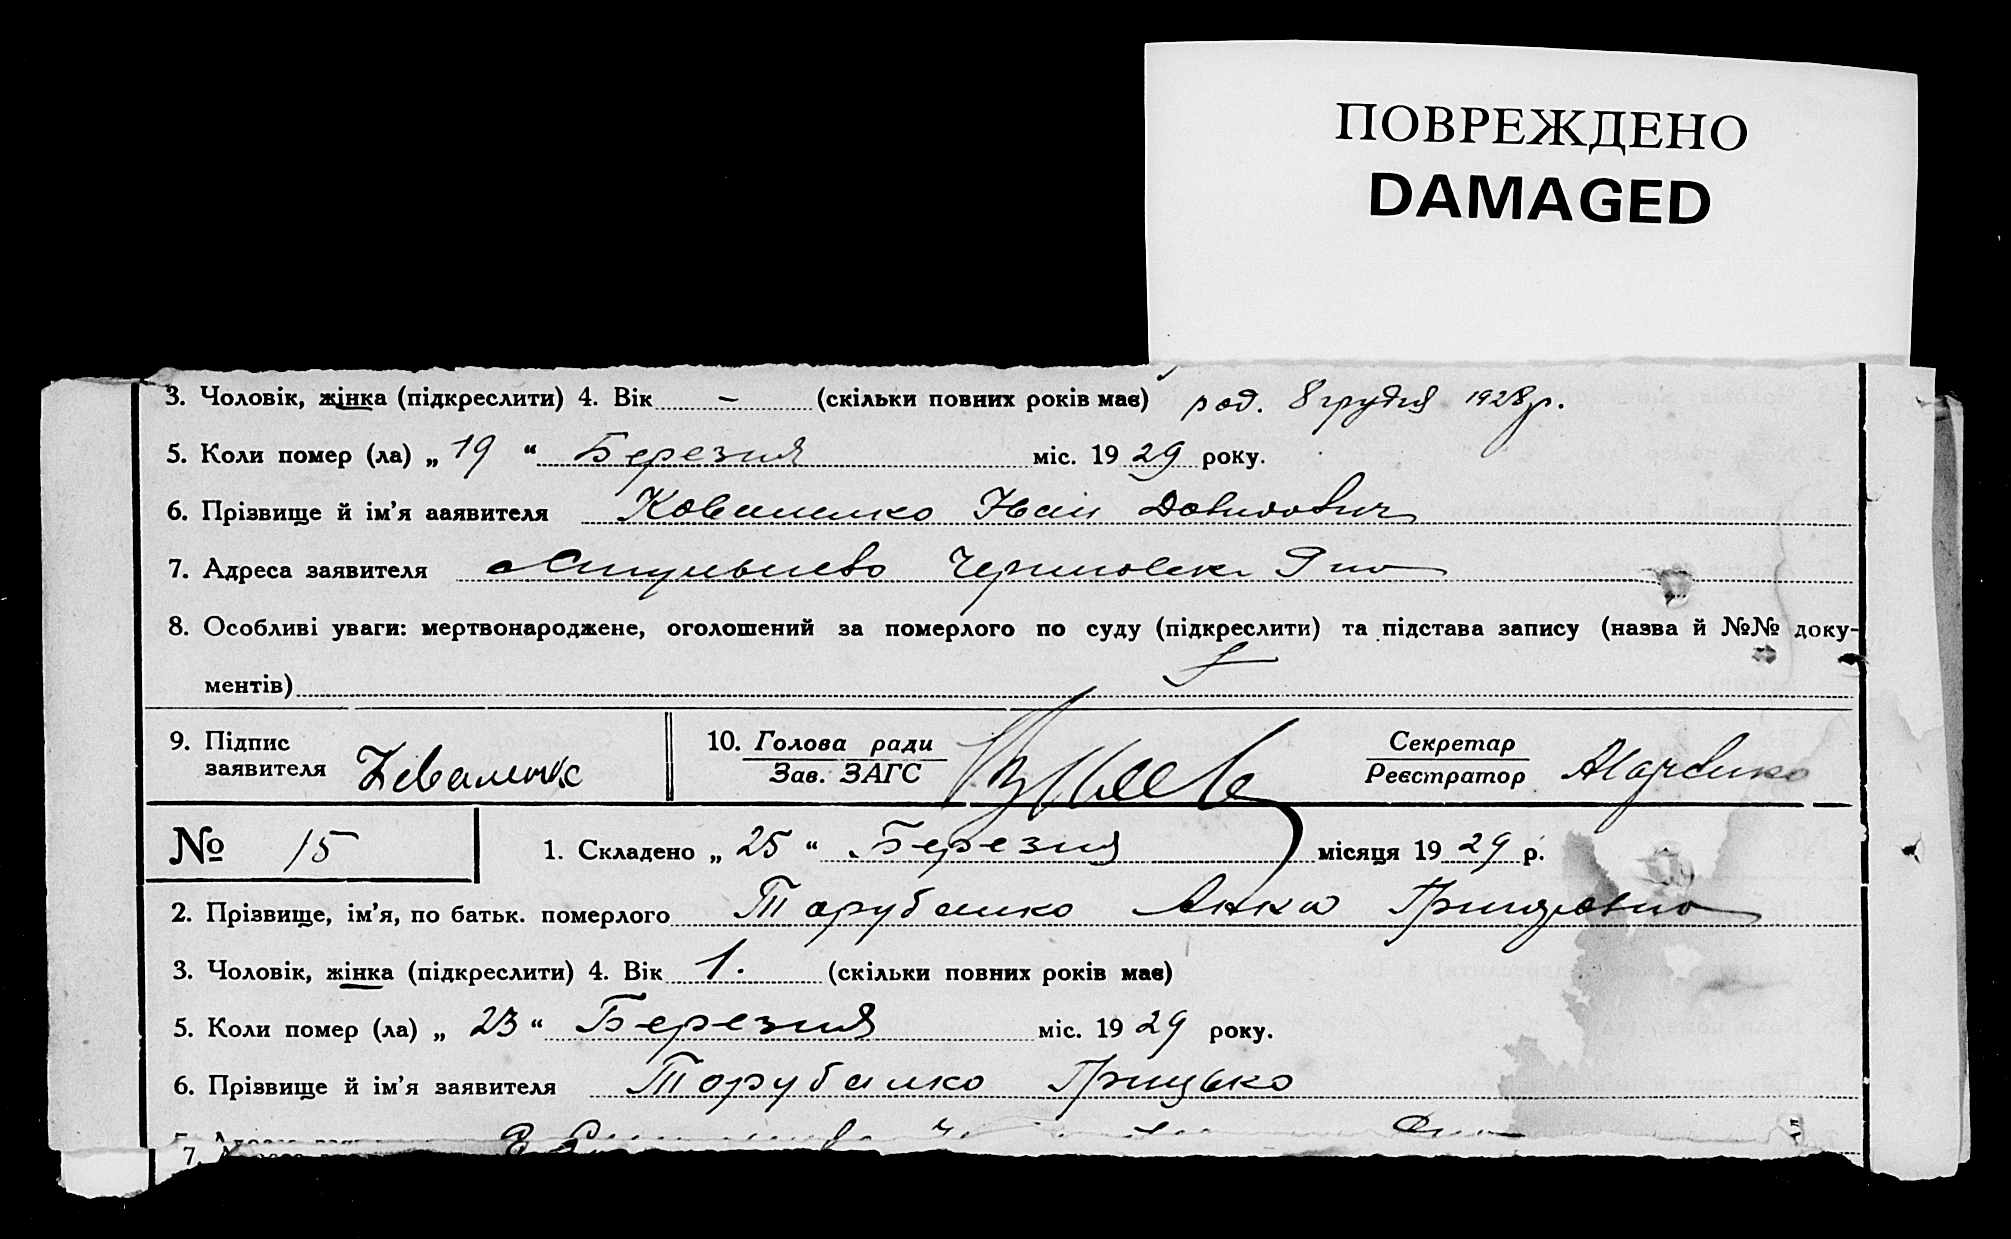 ПОВРЕЖДЕНО
DAMAGED
3. Чоловік, жінка (підкреслити) 4. Вік - (скільки повних років має) род. 8 грудня 1928 р.
5. Коли помер (ла) „ 19 “ Березня міс. 19 29 року.
6. Прізвище й ім’я заявителя Коваленко Іван Давидович
7. Адреса заявителя
8. Особливі уваги: мертвонароджене, оголошений за померлого по суду (підкреслити) та підстава запису (назва й №№ доку-
ментів)
9. Підпис
заявителя Коваленко
10. Голова ради
Зав. ЗАГС
Секретар
Реєстратор
№ 15
1. Складено „ 25 “ Березня місяця 19 29 р.
2. Прізвище, ім’я, по батьк. померлого Торубалко Анна
3. Чоловік, жінка (підкреслити) 4. Вік 1. (скільки повних років має)
5. Коли помер (ла) „ 23 “ Березня міс. 19 29 року.
6. Прізвище й ім’я заявителя Торубалко Грицько
7.